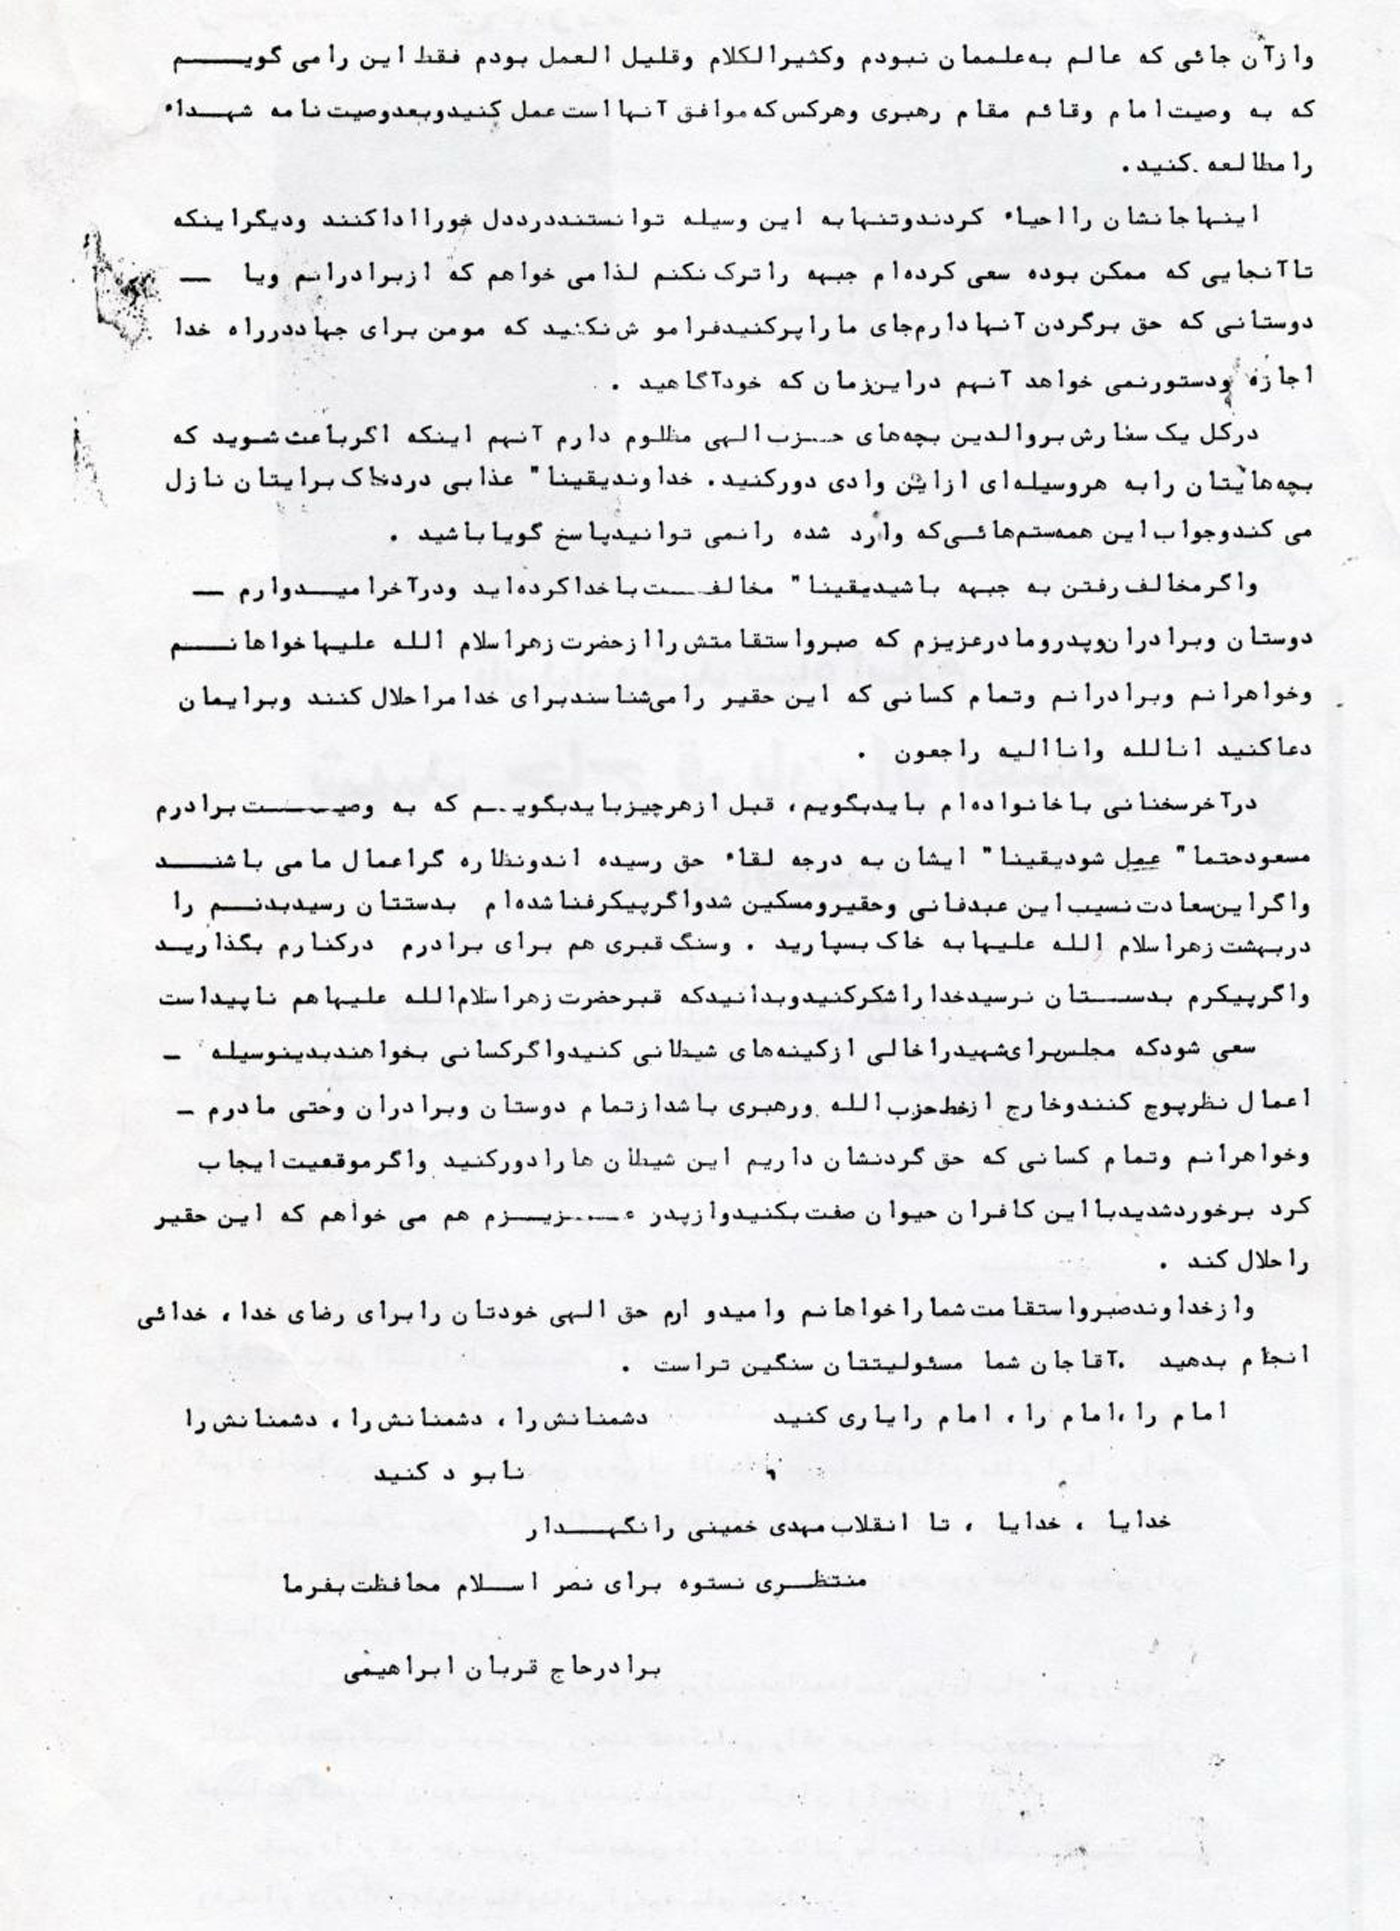 وازآن جائی که عالم به‌علممان نبودم وکثیرالکلام وقلیل العمل بودم فقط این رامی گویـــم
که به وصیت‌امام وقائم مقام رهبری وهرکس‌که موافق آنهااست‌عمل کنیدوبعدوصیت‌نامه شهـداء
رامطالعه کنید.
اینهاجانشان رااحیاء کردندوتنهابه این وسیله توانستنددرددل خوراا‌داکنند ودیگراینکه
تاآنجایی که ممکن بوده سعی کرده‌ام جبهه راترک‌نکنم لذامی خواهم که ازبرادرانم ویا ـ
دوستانی که حق برگردن آنهادارم‌جای ماراپرکنیدفرامو ش‌نکنید که مومن برای جهاددرراه خدا
اجازه ودستورنمی خواهد آنهم دراین‌زمان که خودآگاهید .
درکل یک سفارش‌بروالدین بچه‌های حـزب‌الهی مظلوم دارم آنهم اینکه اگرباعث‌شوید که
بچه‌هایتان رابه هروسیله‌ای ازاین وادی دورکنید. خداوندیقینا" عذابی دردناک‌برایتان نازل
می کندوجواب‌این همه‌ستم‌هائـی‌که وارد شده رانمی توانیدپاسخ گویاباشید .
واگرمخالف‌رفتن به جبهه باشیدیقینا" مخالفـــت‌باخداکرده‌اید ودرآخرامیــدوارم ـ
دوستان وبرادران‌وپدرومادرعزیزم که صبرواستقامتش‌راازحضرت‌زهراسلام الله علیهاخواهانــم
وخواهرانم وبرادرانم وتمام کسانی که این حقیر رامی‌شناسندبرای خدامراحلال کنند وبرایمان
دعاکنید انالله واناالیه راجعون .
درآخرسخنانی باخانواده‌ام بایدبگویم، قبل ازهرچیزبایدبگویـم که به وصیـــت‌برادرم
مسعودحتما" عمل شودیقینا" ایشان به درجه لقاء حق رسیده اندونظاره گراعمال مامی باشنــد
واگراین‌سعادت‌نسیب‌این عبدفانی وحقیرومسکین شدواگرپیکرفناشده‌ام بدستتان رسیدبدنــم را
دربهشت‌زهراسلام الله علیهابه خاک‌بسپارید . وسنگ‌قبری هم برای برادرم درکنارم بگذاریـد
واگرپیکرم بدســتان نرسیدخداراشکرکنیدوبدانیدکه قبرحضرت‌زهراسلام‌الله علیهاهم ناپیداست
سعی شودکه مجلس‌برای‌شهیدراخالی ازکینه‌های شیطانی کنیدواگرکسانی بخواهندبدینوسیله ـ
اعمال نظرپوچ کنندوخارج ازخط‌حزب‌الله ورهبری باشدازتمام دوستان وبرادران وحتی مادرم ـ
وخواهرانم وتمام کسانی که حق گردنشان داریم این شیطان هارادورکنید واگرموقعیت‌ایجاب
کرد برخوردشدیدبااین کافران حیوان صفت‌بکنیدوازپدر عــزیــزم هم می خواهم که این حقیر
راحلال کند .
وازخداوندصبرواستقامت‌شماراخواهانم وامیدو ارم حق الهی خودتان رابرای رضای خدا، خدائی
انجام بدهید .آقاجان شما مسئولیتتان سنگین تراست .
امام را،امام را، امام رایاری کنید دشمنانش‌را، دشمنانش‌را، دشمنانش‌را
نابو د کنید
خدایا ، خدایا ، تا انقلاب‌مهدی خمینی رانگهــدار
منتظــری نستوه برای نصر اسـلام محافظت‌بفرما
برادرحاج قربان ابراهیمی